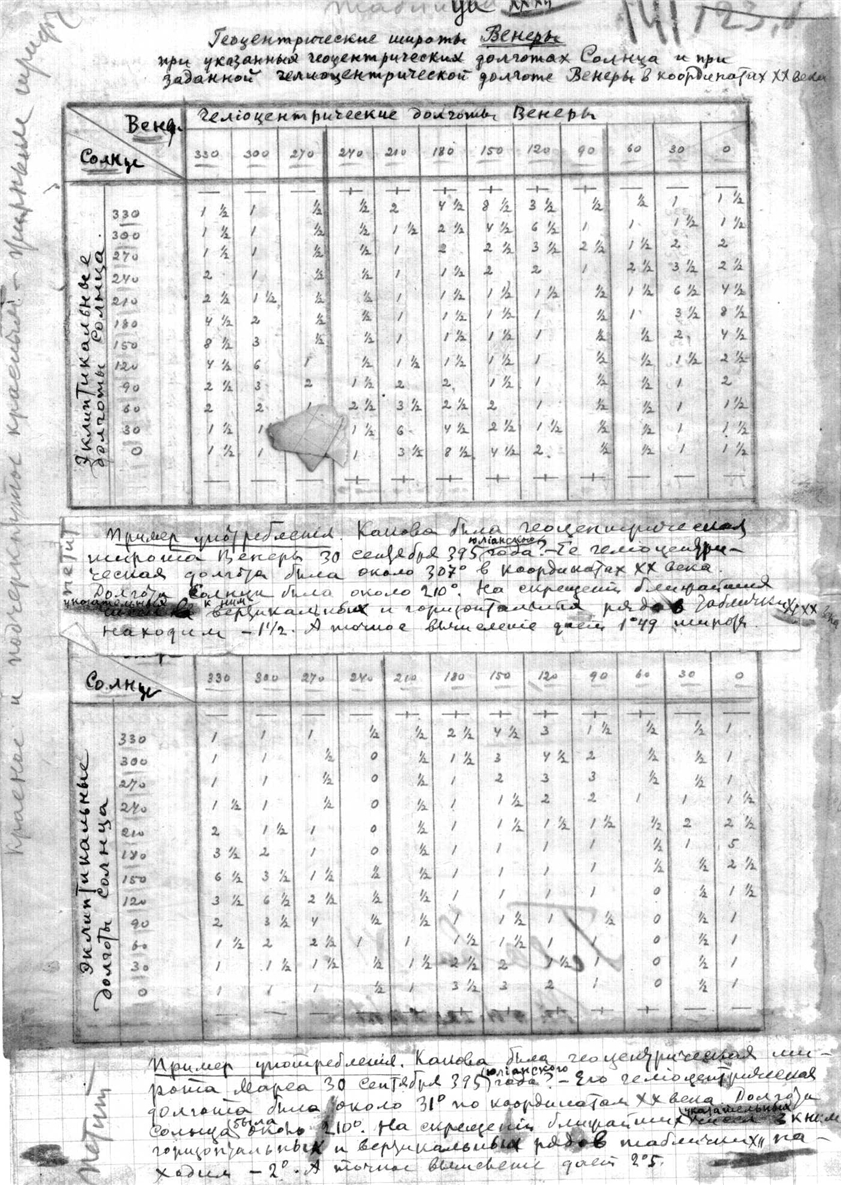 таблица XXXII
Геоцентрическіе широты Венеры
при указанных геоцентрических долготах Солнца и при
заданной гелиоцентрической долготе Венеры в координатах XX века
Венер. Геліоцентрические долготы Венеры
Солнце 330 300 270 240 210 180 150 120 90 60 30 0
Эклиптикальные долготы Солнца.
— — — + + + + + + — — —
330 1 ½ 1 ½ ½ 2 4 ½ 8 ½ 3 ½ ½ ½ 1 1 ½
300 1 ½ 1 ½ ½ 1 ½ 2 ½ 4 ½ 6 ½ 1 1 1 ½ 1 ½
270 1 ½ 1 ½ ½ 1 2 2 ½ 3 ½ 2 ½ 1 ½ 2 2
240 2 1 ½ ½ 1 1 ½ 2 2 1 2 ½ 3 ½ 2 ½
210 2 ½ 1 ½ ½ ½ 1 1 ½ 1 ½ 1 ½ ½ 1 ½ 6 ½ 4 ½
180 4 ½ 2 ½ ½ 1 1 ½ 1 ½ 1 ½ 1 3 ½ 8 ½
150 8 ½ 3 ½ ½ 1 1 ½ 1 ½ 1 ½ ½ 2 4 ½
120 4 ½ 6 1 ½ 1 ½ 1 ½ 1 ½ 1 ½ ½ 1 ½ 2 ½
90 2 ½ 3 2 1 ½ 2 2 1 ½ 1 ½ ½ 1 2
60 2 2 1 2 ½ 3 ½ 2 ½ 2 1 ½ ½ 1 1 ½
30 1 ½ 1 1 ½ 6 4 ½ 2 ½ 1 ½ ½ ½ 1 1 ½
0 1 ½ 1 1 3 ½ 8 ½ 4 ½ 2 ½ ½ 1 1 ½
— — — + + + + + + — — —
Пример употребленія. Какова была геоцентрическая
широта Венеры 30 сентября 395 юліанского года? — Ее гелиоцентри-
ческая долгота была около 307° в координатах XX века.
Долгота Солнца была около 210°. На скрещеніи ближайших
указательных к ним вертикальных и горизонтальных рядов таблички XXXII
находим — 1½. А точное вычисленіе дает 1°49 минут.
петит
Солнце 330 300 270 240 210 180 150 120 90 60 30 0
Эклиптикальные долготы Солнца
— — — — — + + + + + — —
330 1 1 1 ½ ½ 2 ½ 4 ½ 3 1 ½ ½ ½ 1
300 1 1 ½ 0 ½ 1 ½ 3 4 ½ 2 ½ ½ 1
270 1 1 ½ 0 ½ 1 2 3 3 ½ ½ 1
240 1 ½ 1 ½ 0 ½ 1 1 ½ 2 2 1 1 1 ½
210 2 1 ½ 1 0 ½ 1 1 ½ 1 ½ 1 ½ ½ 2 2 ½
180 3 ½ 2 1 0 ½ 1 1 1 1 ½ 1 5
150 6 ½ 3 ½ 1 ½ ½ ½ 1 1 1 1 ½ ½ 2 ½
120 3 ½ 6 ½ 2 ½ ½ ½ 1 1 1 1 0 ½ 1 ½
90 2 3 ½ 4 ½ ½ 1 1 ½ 1 ½ 0 ½ 1
60 1 ½ 2 2 ½ 1 1 1 ½ 1 ½ 1 1 0 ½ 1
30 1 1 ½ 1 ½ ½ 1 2 ½ 2 1 ½ 1 0 ½ 1
0 1 1 1 ½ 1 3 ½ 3 2 1 0 ½ 1
Пример употребленія. Какова была геоцентрическая ши-
рота Марса 30 сентября 395 юліанского года? — Его геліоцентрическая
долгота была около 31° по координатам XX века. Долгота
Солнца была около 210°. На скрещеніи ближайших указательных к ним
горизонтальных и вертикальных рядов таблички на-
ходим — 2°. А точное вычисление дает 2°5.
петит
красное и подчеркнутое красным — жирным шрифт